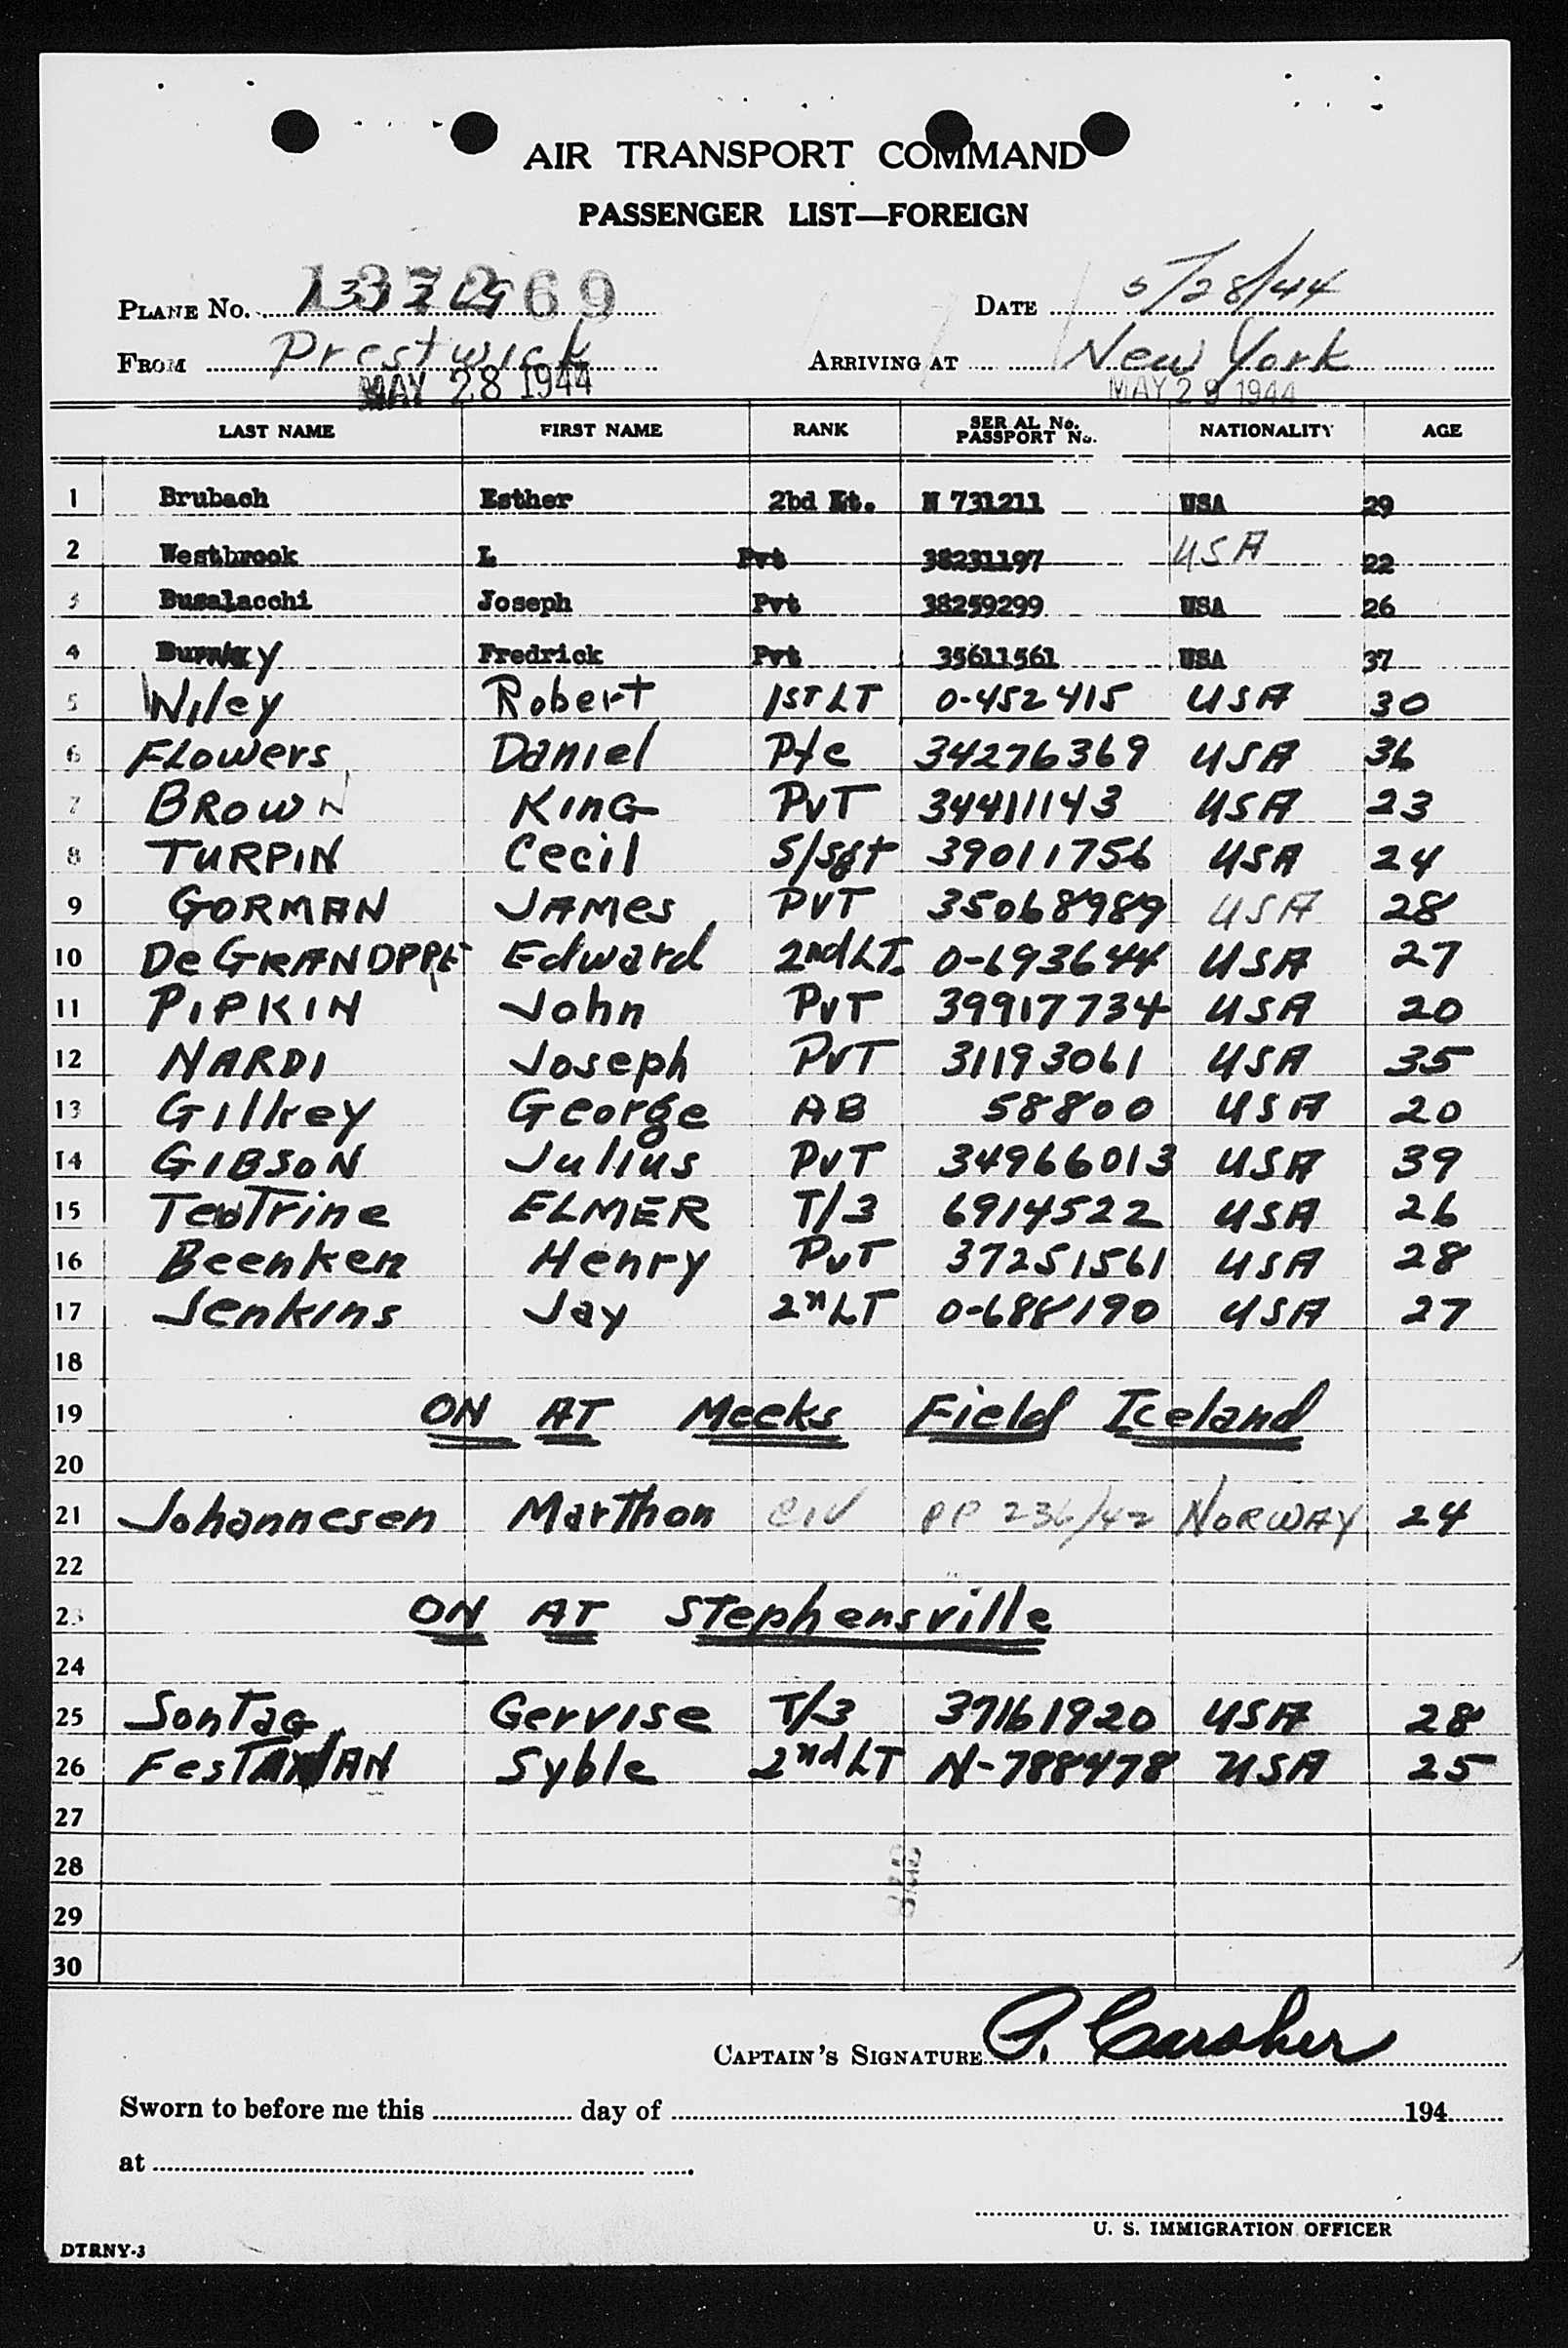 AIR TRANSPORT COMMAND
PASSENGER LIST—FOREIGN
PLANE No. 69 DATE 5/28/44
FROM Prestwick ARRIVING AT New York
MAY 28 1944 MAY 29 1944
LAST NAME FIRST NAME RANK SERIAL No. PASSPORT No. NATIONALITY AGE
1 Brubach Esther 2bd Lt. N 731211 USA 29
2 Westbrook L Pvt 38231197 USA 22
3 Busalacchi Joseph Pvt 38259299 USA 26
4 Fredrick Pvt 35611561 USA 37
5 Wiley Robert 1ST LT 0-452415 USA 30
6 FLowers Daniel Pfc 34276369 USA 36
7 BROWN KinG PvT 34411143 USA 23
8 TURPIN Cecil S/Sgt 39011756 USA 24
9 GORMAN JAMes PVT 35068989 USA 28
10 De GRANDPRE Edward 2nd LT. 0-693644 USA 27
11 PIPKIN John PvT 39917734 USA 20
12 NARDI Joseph PvT 31193061 USA 35
13 Gilkey George AB 58800 USA 20
14 GIBSON Julius PvT 34966013 USA 39
15 ELMER T/3 6914522 USA 26
16 Beenken Henry PvT 37251561 USA 28
17 Jenkins Jay 2nd LT 0-688190 USA 27
18
19 ON AT Meeks Field Iceland
20
21 Johannesen Marthon CIV PP 236/42 NORWAY 24
22
23 ON AT STephensville
24
25 SonTaG Gervise T/3 37161920 USA 28
26 Syble 2nd LT N-788478 USA 25
27
28
29
30
CAPTAIN'S SIGNATURE P.
Sworn to before me this day of 194
at
U. S. IMMIGRATION OFFICER
DTRNY-3